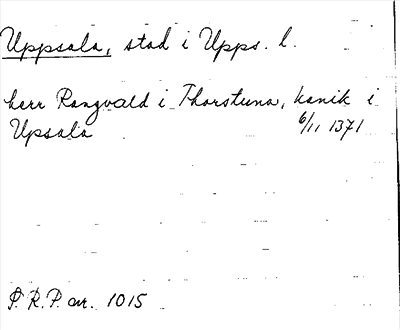 Uppsala, stad i Upps. l.
herr Rangvald i Thorstuna, kanik i
Upsala 6/11 1371
S. R. P. nr. 1015